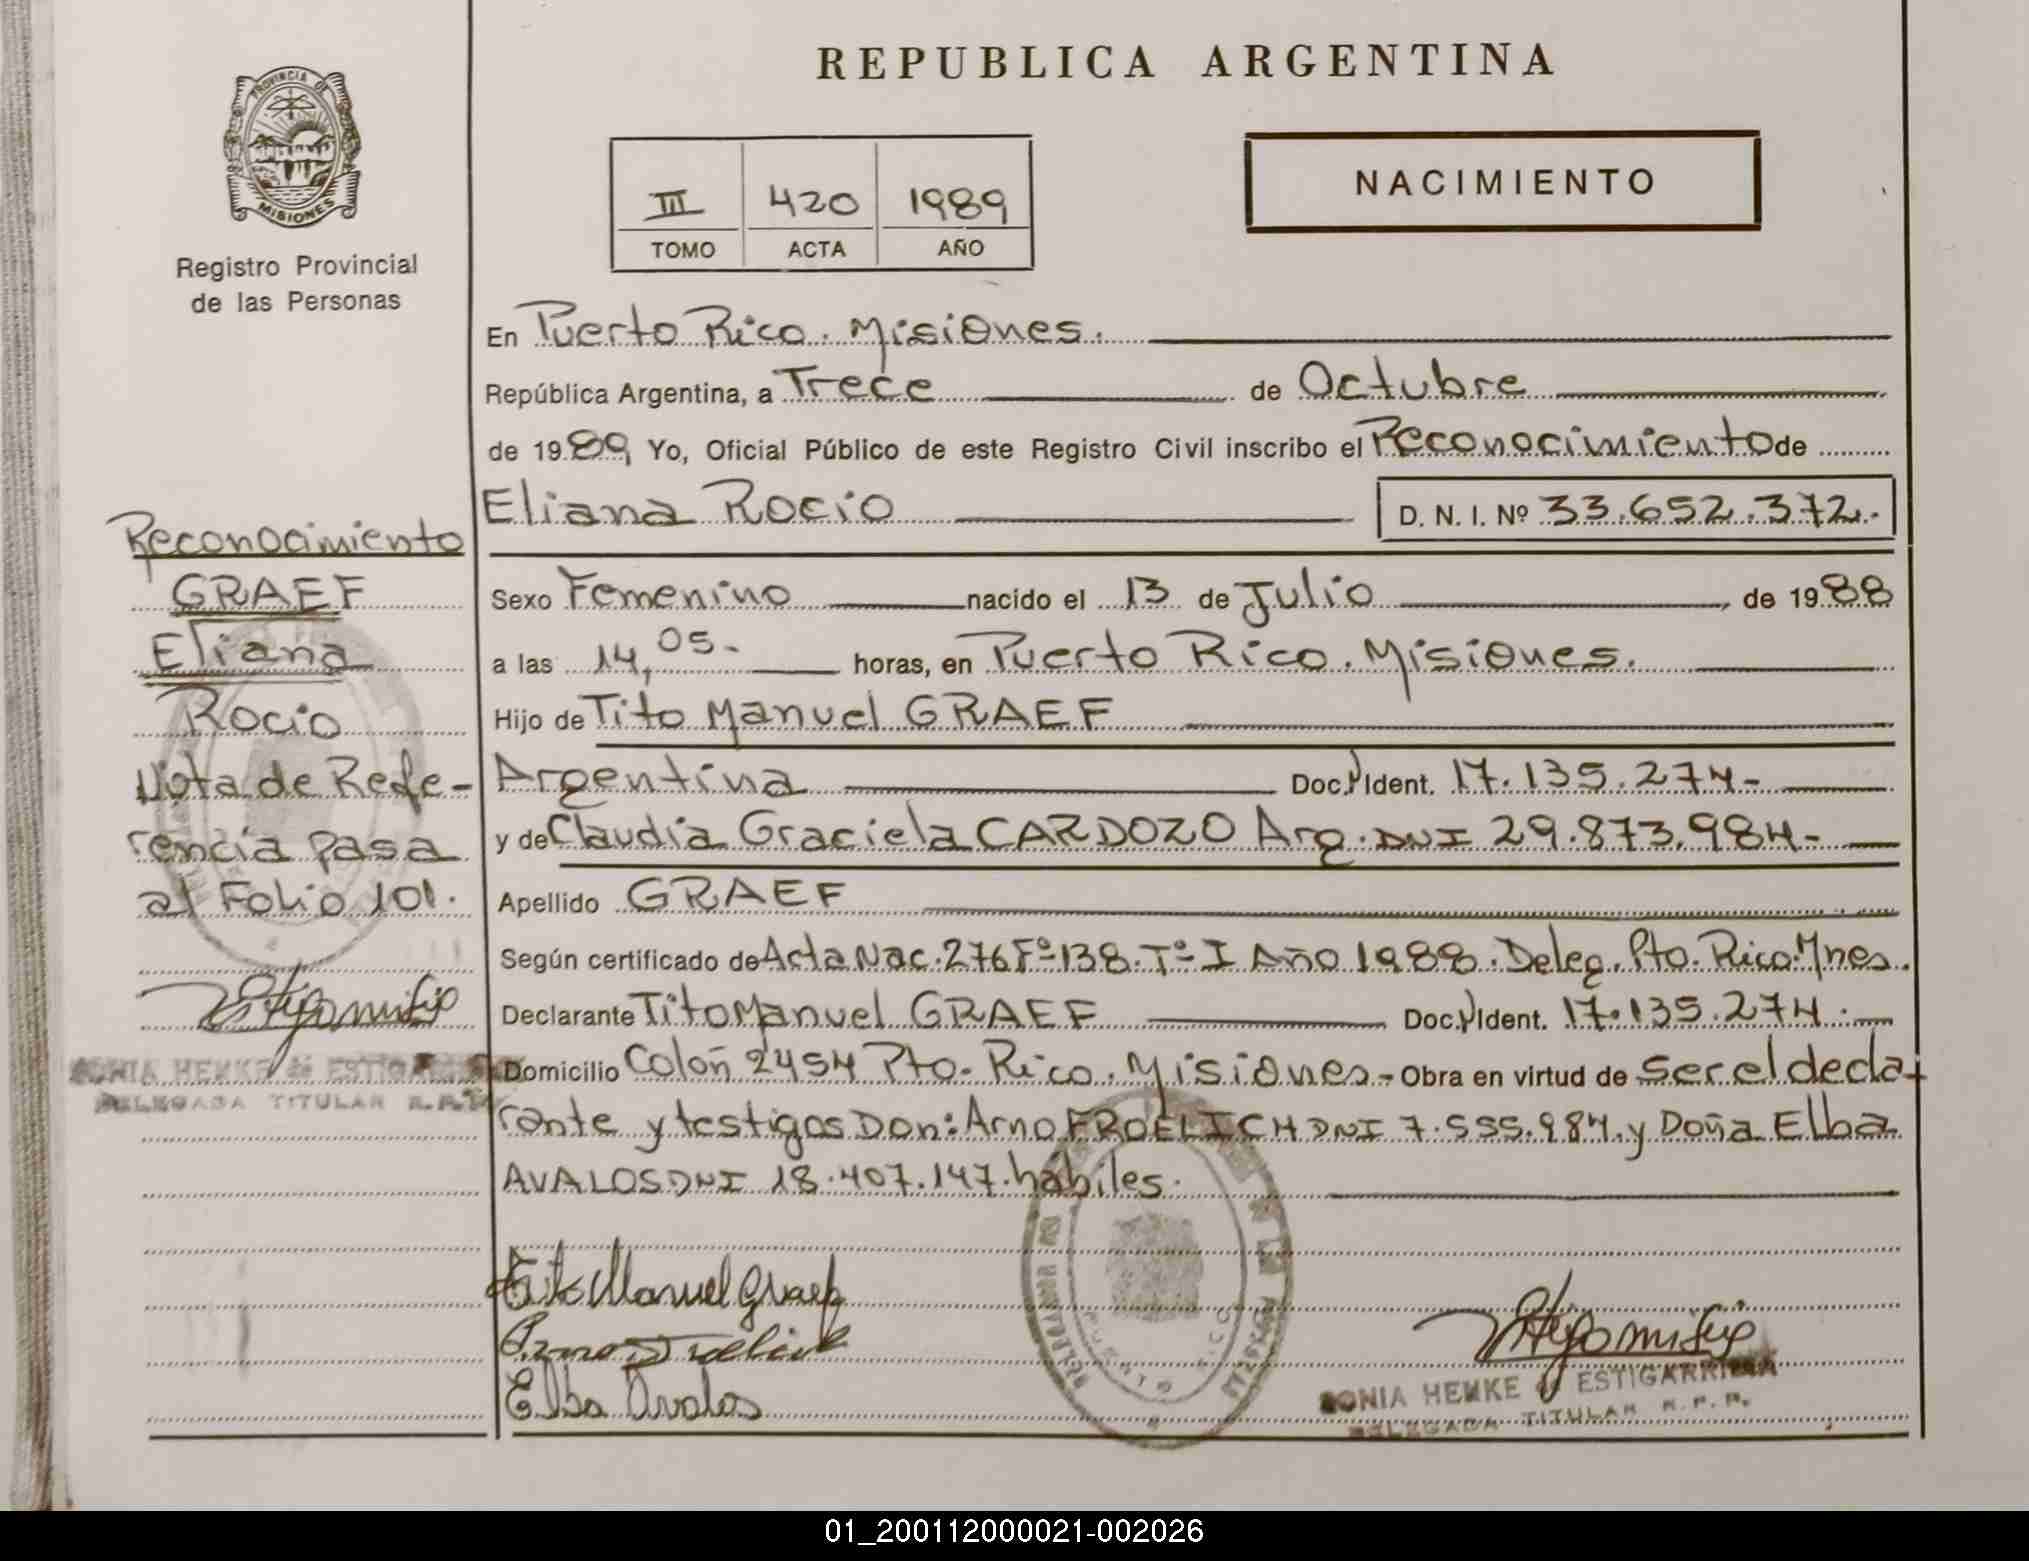 REPUBLICA ARGENTINA
PROVINCIA DE
MISIONES
Registro Provincial
de las Personas
III 420 1989
TOMO ACTA AÑO
NACIMIENTO
En Puerto Rico. Misiones.
República Argentina, a Trece de Octubre
de 1989, Yo, Oficial Público de este Registro Civil inscribo el Reconocimiento de
Eliana Rocio D. N. I. Nº 33.652.372.-
Sexo Femenino nacido el 13 de Julio, de 1988
a las 14,05.- horas, en Puerto Rico. Misiones.
Hijo de Tito Manuel GRAEF
Argentina Doc. Ident. 17.135.274-
y de Claudia Graciela CARDOZO Arg. DNI 29.873.984-
Apellido GRAEF
Según certificado de Acta Nac. 276 Fº 138. Tº I Año 1988. Deleg. Pto. Rico. Mnes.
Declarante Tito Manuel GRAEF Doc. Ident. 17.135.274.-
Domicilio Colón 2454 Pto. Rico. Misiones.- Obra en virtud de ser el decla-
rante y testigos Don: Arno FROELICH DNI 7.555.984. y Doña Elba
AVALOS DNI 18.407.147. hábiles.
Reconocimiento
GRAEF
Eliana
Rocio
Nota de Refe-
rencia pasa
al Folio 101.
SONIA HENKE de ESTIGARRIBIA
DELEGADA TITULAR R.P.P.
Tito Manuel Graef
Arno Froelich
Elba Avalos
PUERTO RICO
SONIA HENKE de ESTIGARRIBIA
DELEGADA TITULAR R.P.P.
01_200112000021-002026